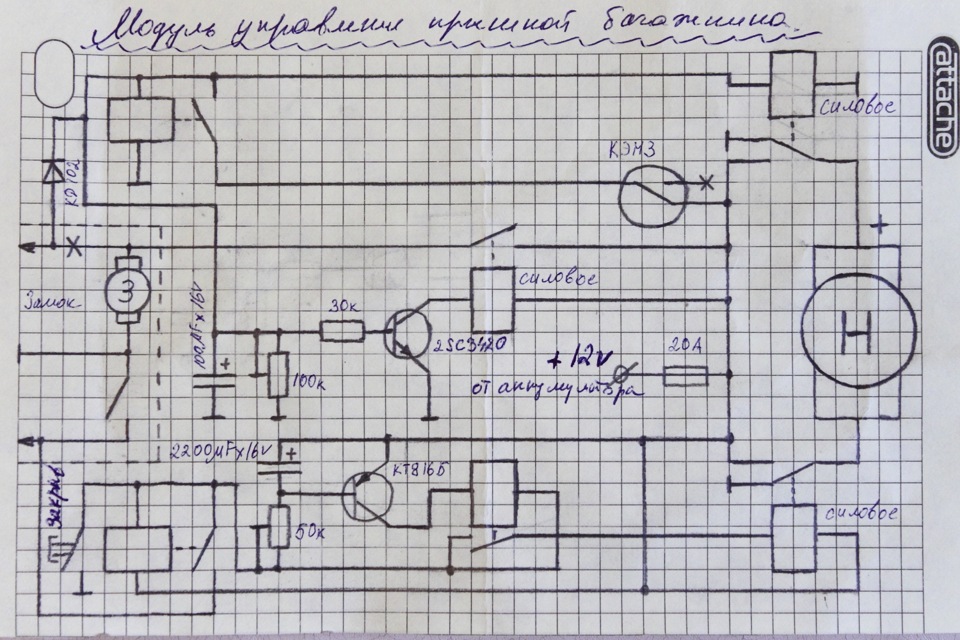 Модуль управления крышкой багажника
attache
силовое
КЭМЗ
КД102
+
Замок
З
100µFx16V
+
30к
силовое
2SC3420
100к
+12v
от аккумулятора
20А
Н
2200µFx16V
+
КТ816Б
закрыв
50к
силовое